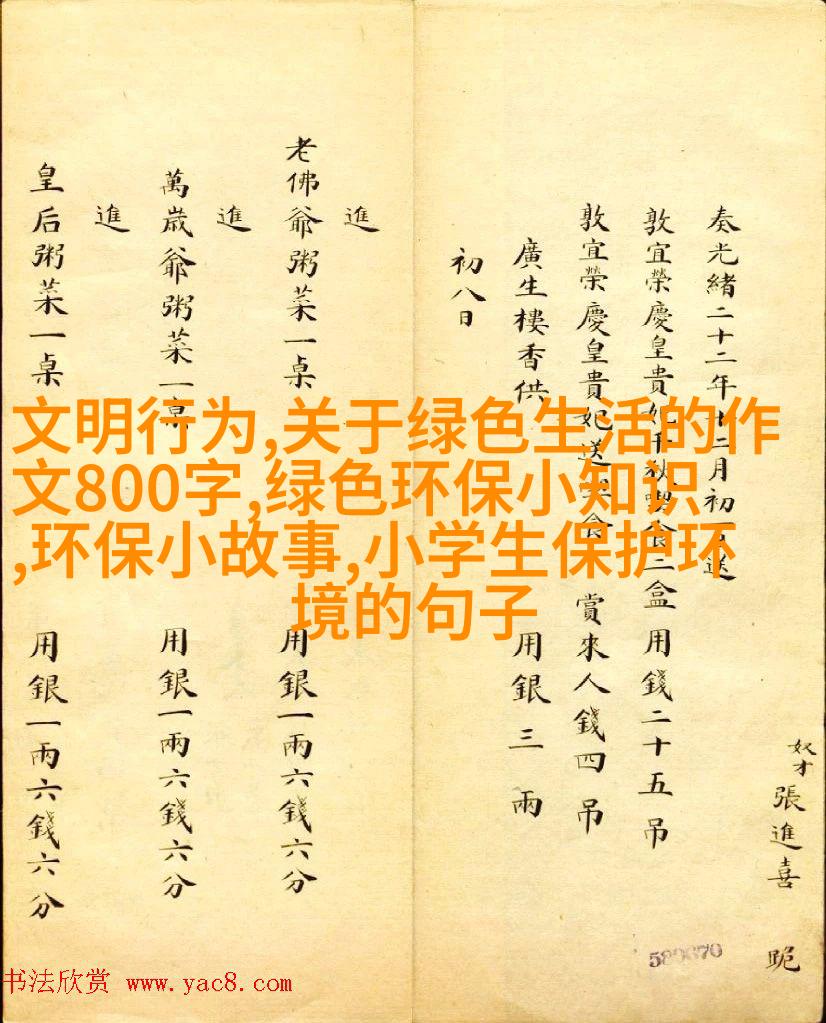 奴才張進喜 跪
奏光緒二十二年十二月初 送
敦宜榮慶皇貴妃千秋 食二盒 用錢二十五吊
敦宜榮慶皇貴妃送 食 賞來人錢四吊
廣生樓香供 用銀三兩
初八日
進
老佛爺粥菜一桌 用銀一兩六錢六分
進
萬歲爺粥菜一桌 用銀一兩六錢六分
進
皇后粥菜一桌 用銀一兩六錢六分
文明行为,关于绿色生活的作
文800字,绿色环保小知识
,环保小故事,小学生保护环
境的句子
书法欣赏 www.yac8.com